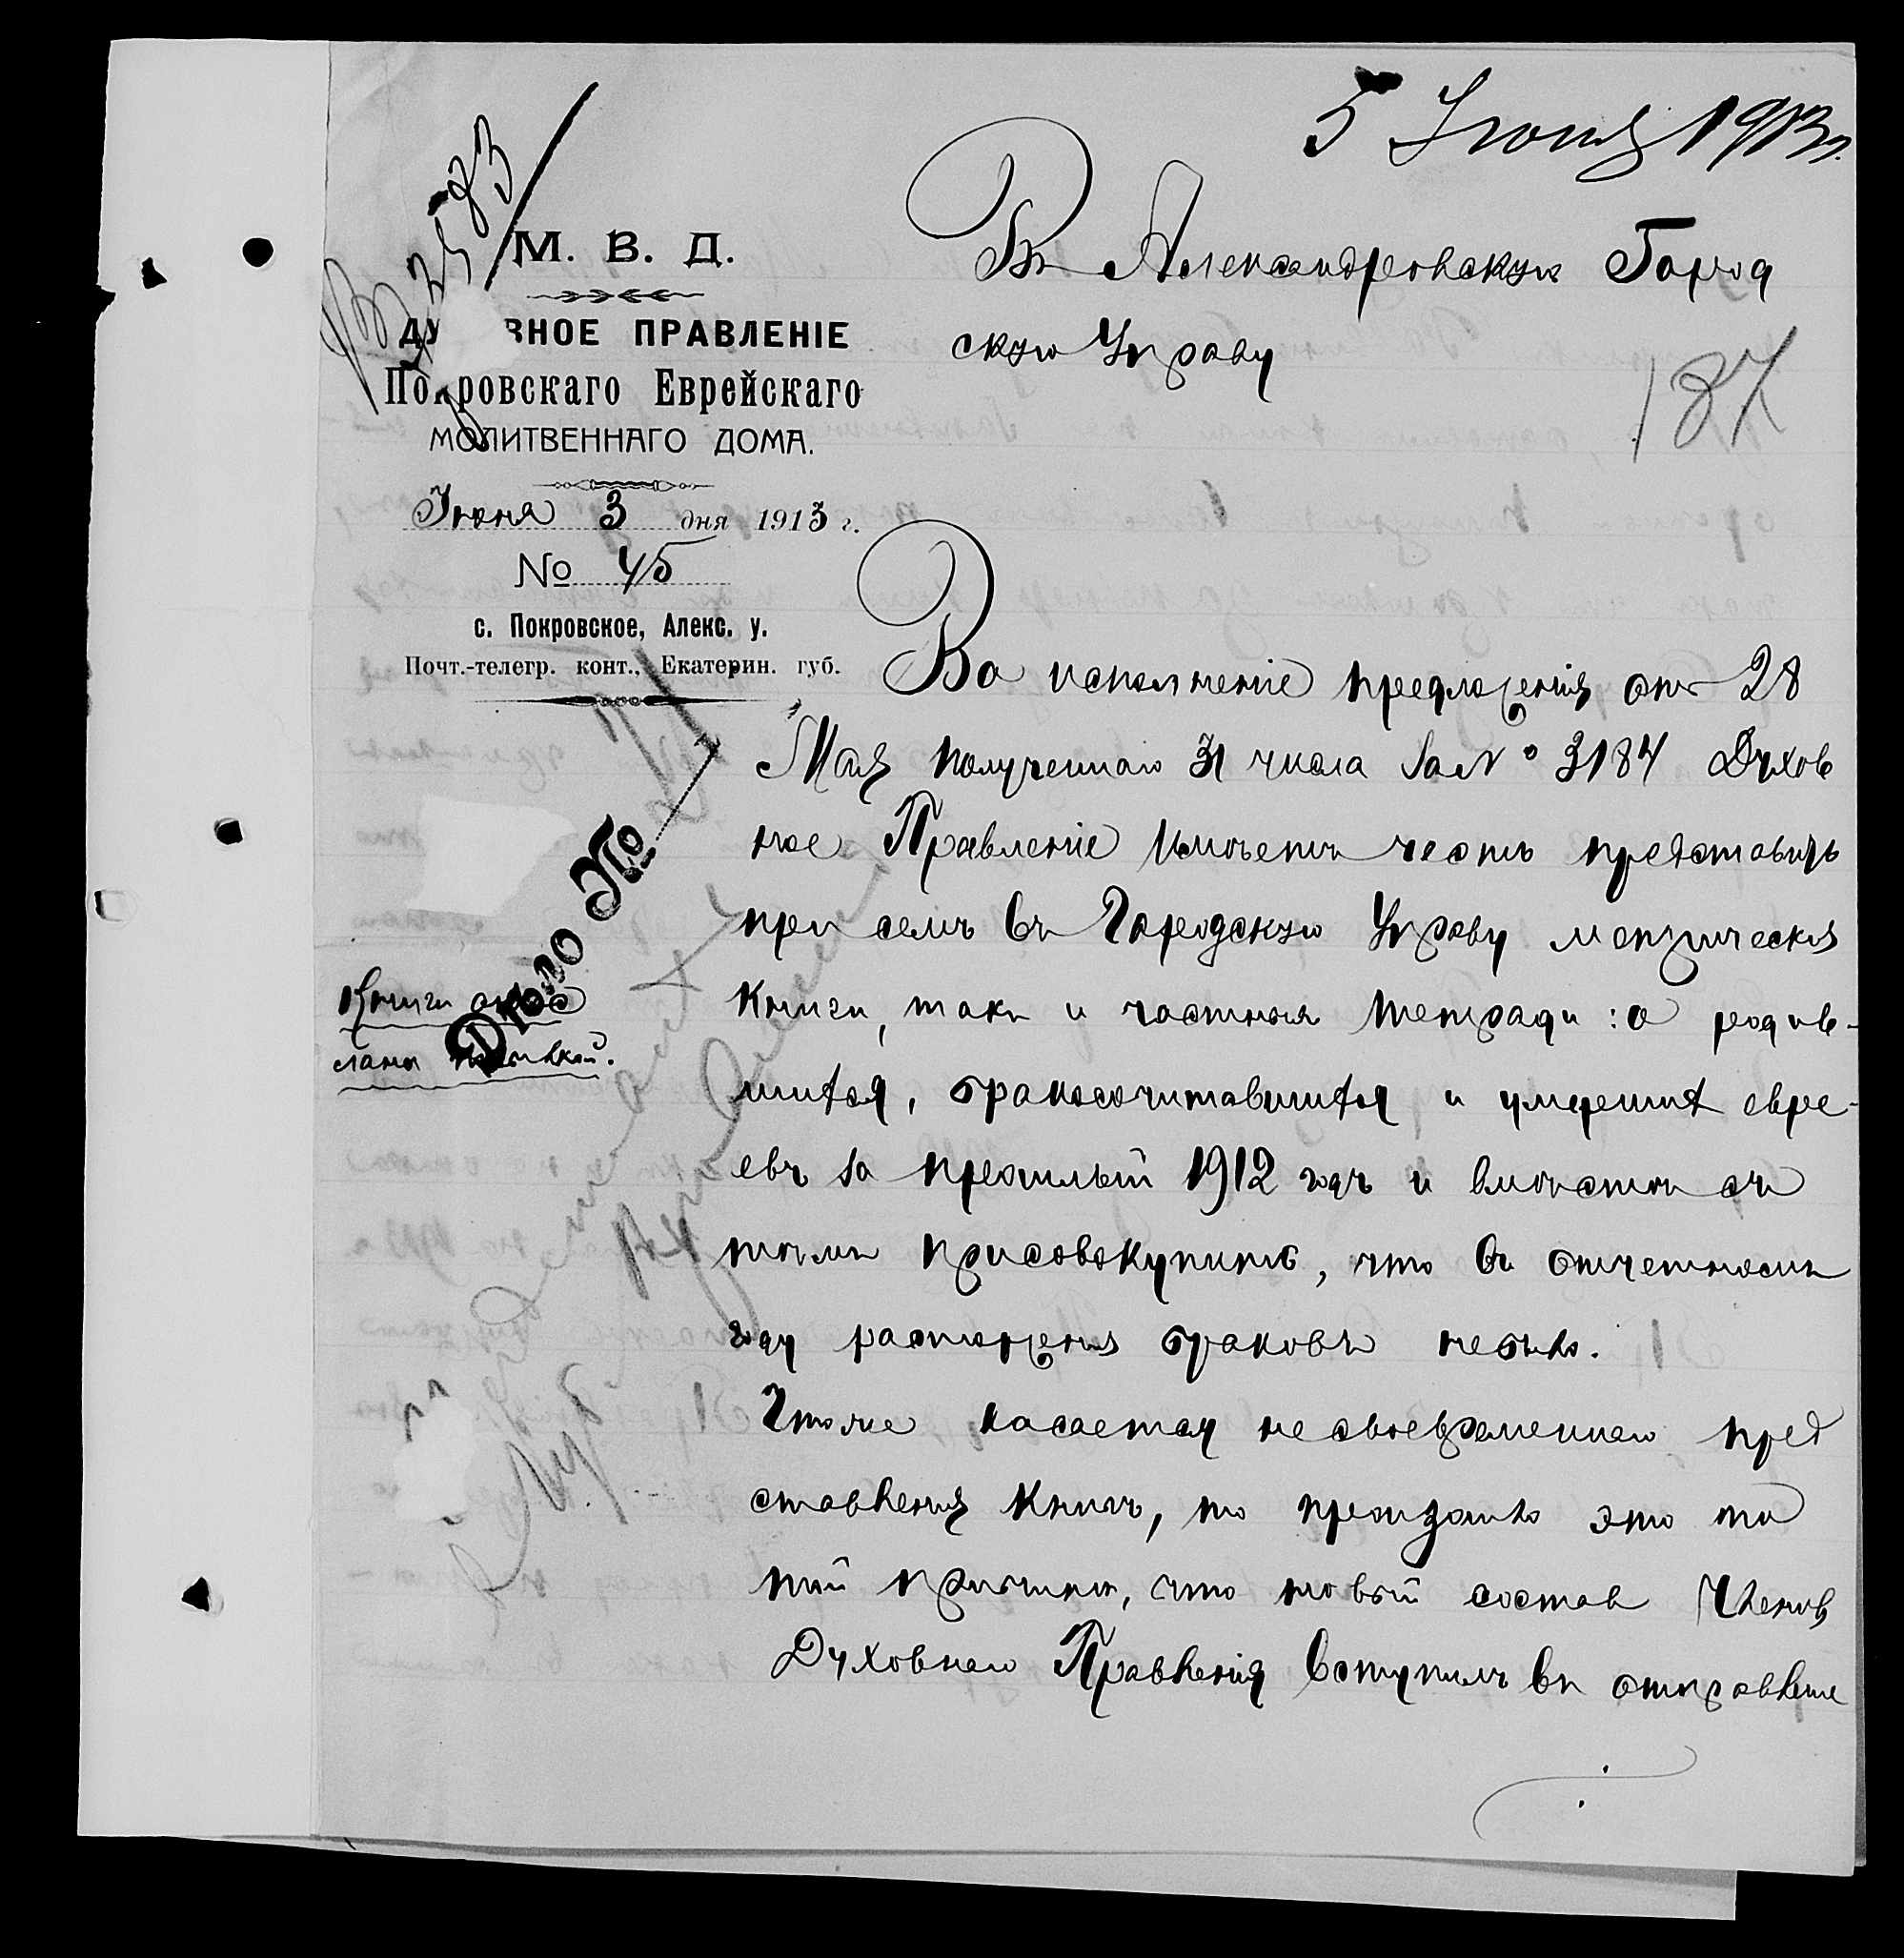 5 Iюня 1913 г.
М. В. Д.
ДУ ВНОЕ ПРАВЛЕНІЕ
Покровскаго Еврейскаго
МОЛИТВЕННАГО ДОМА.
Іюня 3 дня 1913 г.
№ 45
с. Покровское, Алекс. у.
Почт.-телегр. конт., Екатерин. губ.
Въ Александровскую Город
скую Управу
187
Во исполненіе предложенія отъ 28
Мая полученнаго 31 числа за № 3184 Духов
ное Правленіе имѣетъ честь представить
при семъ въ Городскую Управу метрическія
книги, такъ и частныя тетради: о родив-
шихся, бракосочитавшихся и умершихъ евре-
евъ за прошлый 1912 годъ и вмѣстѣ съ
тѣмъ присовокупить, что въ отчетномъ
году расторженія браковъ небыло.
Чтоже касается несвоевременнаго пред
ставленія книгъ, то произошло это по
той причинѣ, что новый составъ Членовъ
Духовнаго Правленія вступилъ въ отправленіе
Дѣло №
Книги
сланы посылкой.